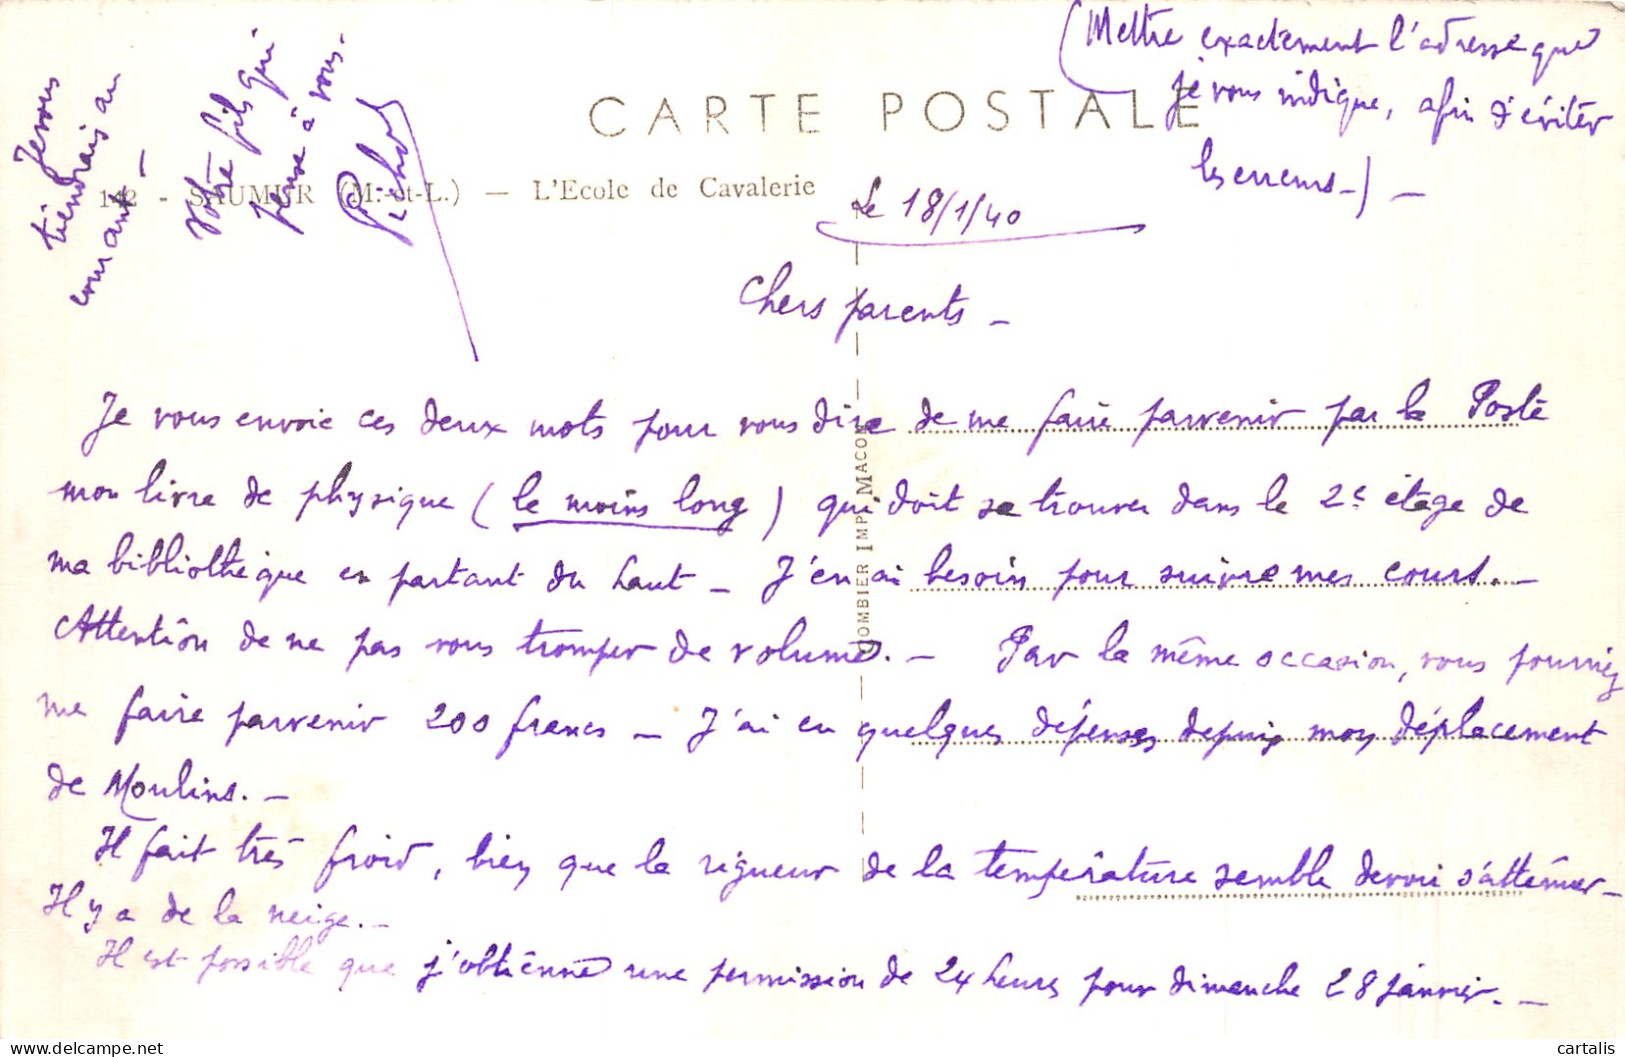 (Mettre exactement l'adresse que
je vous indique, afin d'éviter
les erreurs -) -
CARTE POSTALE
142 - SAUMUR (M.-et-L.) - L'Ecole de Cavalerie
Le 18/1/40
Chers parents -
Je vous envoie ces deux mots pour vous dire de me faire parvenir par la Poste
mon livre de physique (le moins long) qui doit se trouver dans le 2e étage de
ma bibliothèque en partant du haut - J'en ai besoin pour suivre mes cours. -
Attention de ne pas vous tromper de volume. - Par la même occasion, vous pourriez
me faire parvenir 200 francs - J'ai eu quelques dépenses depuis mon déplacement
de Moulins. -
Il fait très froid, bien que la rigueur de la température semble devoir s'atténuer -
Il y a de la neige. -
Il est possible que j'obtienne une permission de 24 heures pour dimanche 28 janvier. -
Je vous
tiendrais au
courant -
Votre fils qui
pense à vous.
COMBIER IMP. MACON
cartalis